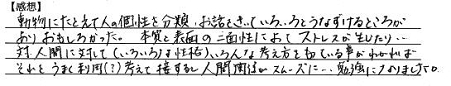 【感想】
動物にたとえて人の個性を分類、お話をきいていろいろとうなずけるところが
ありおもしろかった。本質と表面の二面性によってストレスが生じたり…
対人間に対して(いろいろな性格)、いろんな考え方をもっている事がわかれば
それをうまく利用(?)考えて接すると人間関係がスムーズに…勉強になりました。